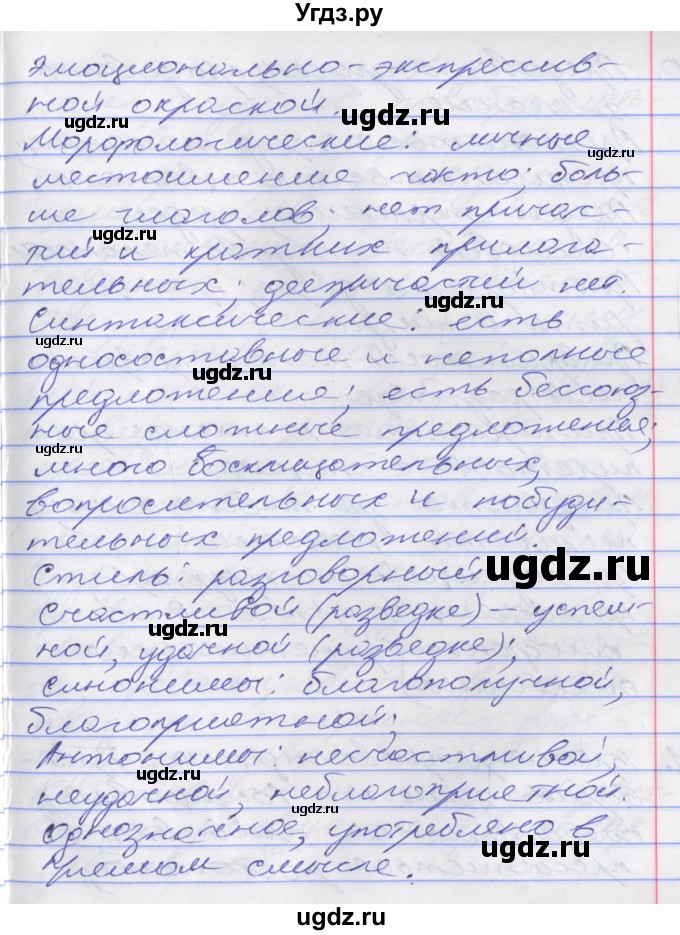 Угдз.ру
эмоционально-экспрессив-
ной окраской.
Морфологические: личные
местоимения часто; боль-
ше глаголов; нет причас-
тий и кратких прилага-
тельных; деепричастий нет.
Синтаксические: есть
односоставные и неполные
предложения; есть бессоюз-
ные сложные предложения;
много восклицательных,
вопросительных и побуди-
тельных предложений.
Стиль: разговорный
Счастливой (разведке) – успеш-
ной, удачной (разведке);
синонимы: благополучной,
благоприятной;
Антонимы: несчастливой,
неудачной, неблагоприятной.
однозначное, употреблено в
прямом смысле.
ugdz.ru
ugdz.ru
ugdz.ru
ugdz.ru
ugdz.ru
ugdz.ru
ugdz.ru
ugdz.ru
ugdz.ru
ugdz.ru
ugdz.ru
ugdz.ru
ugdz.ru
ugdz.ru